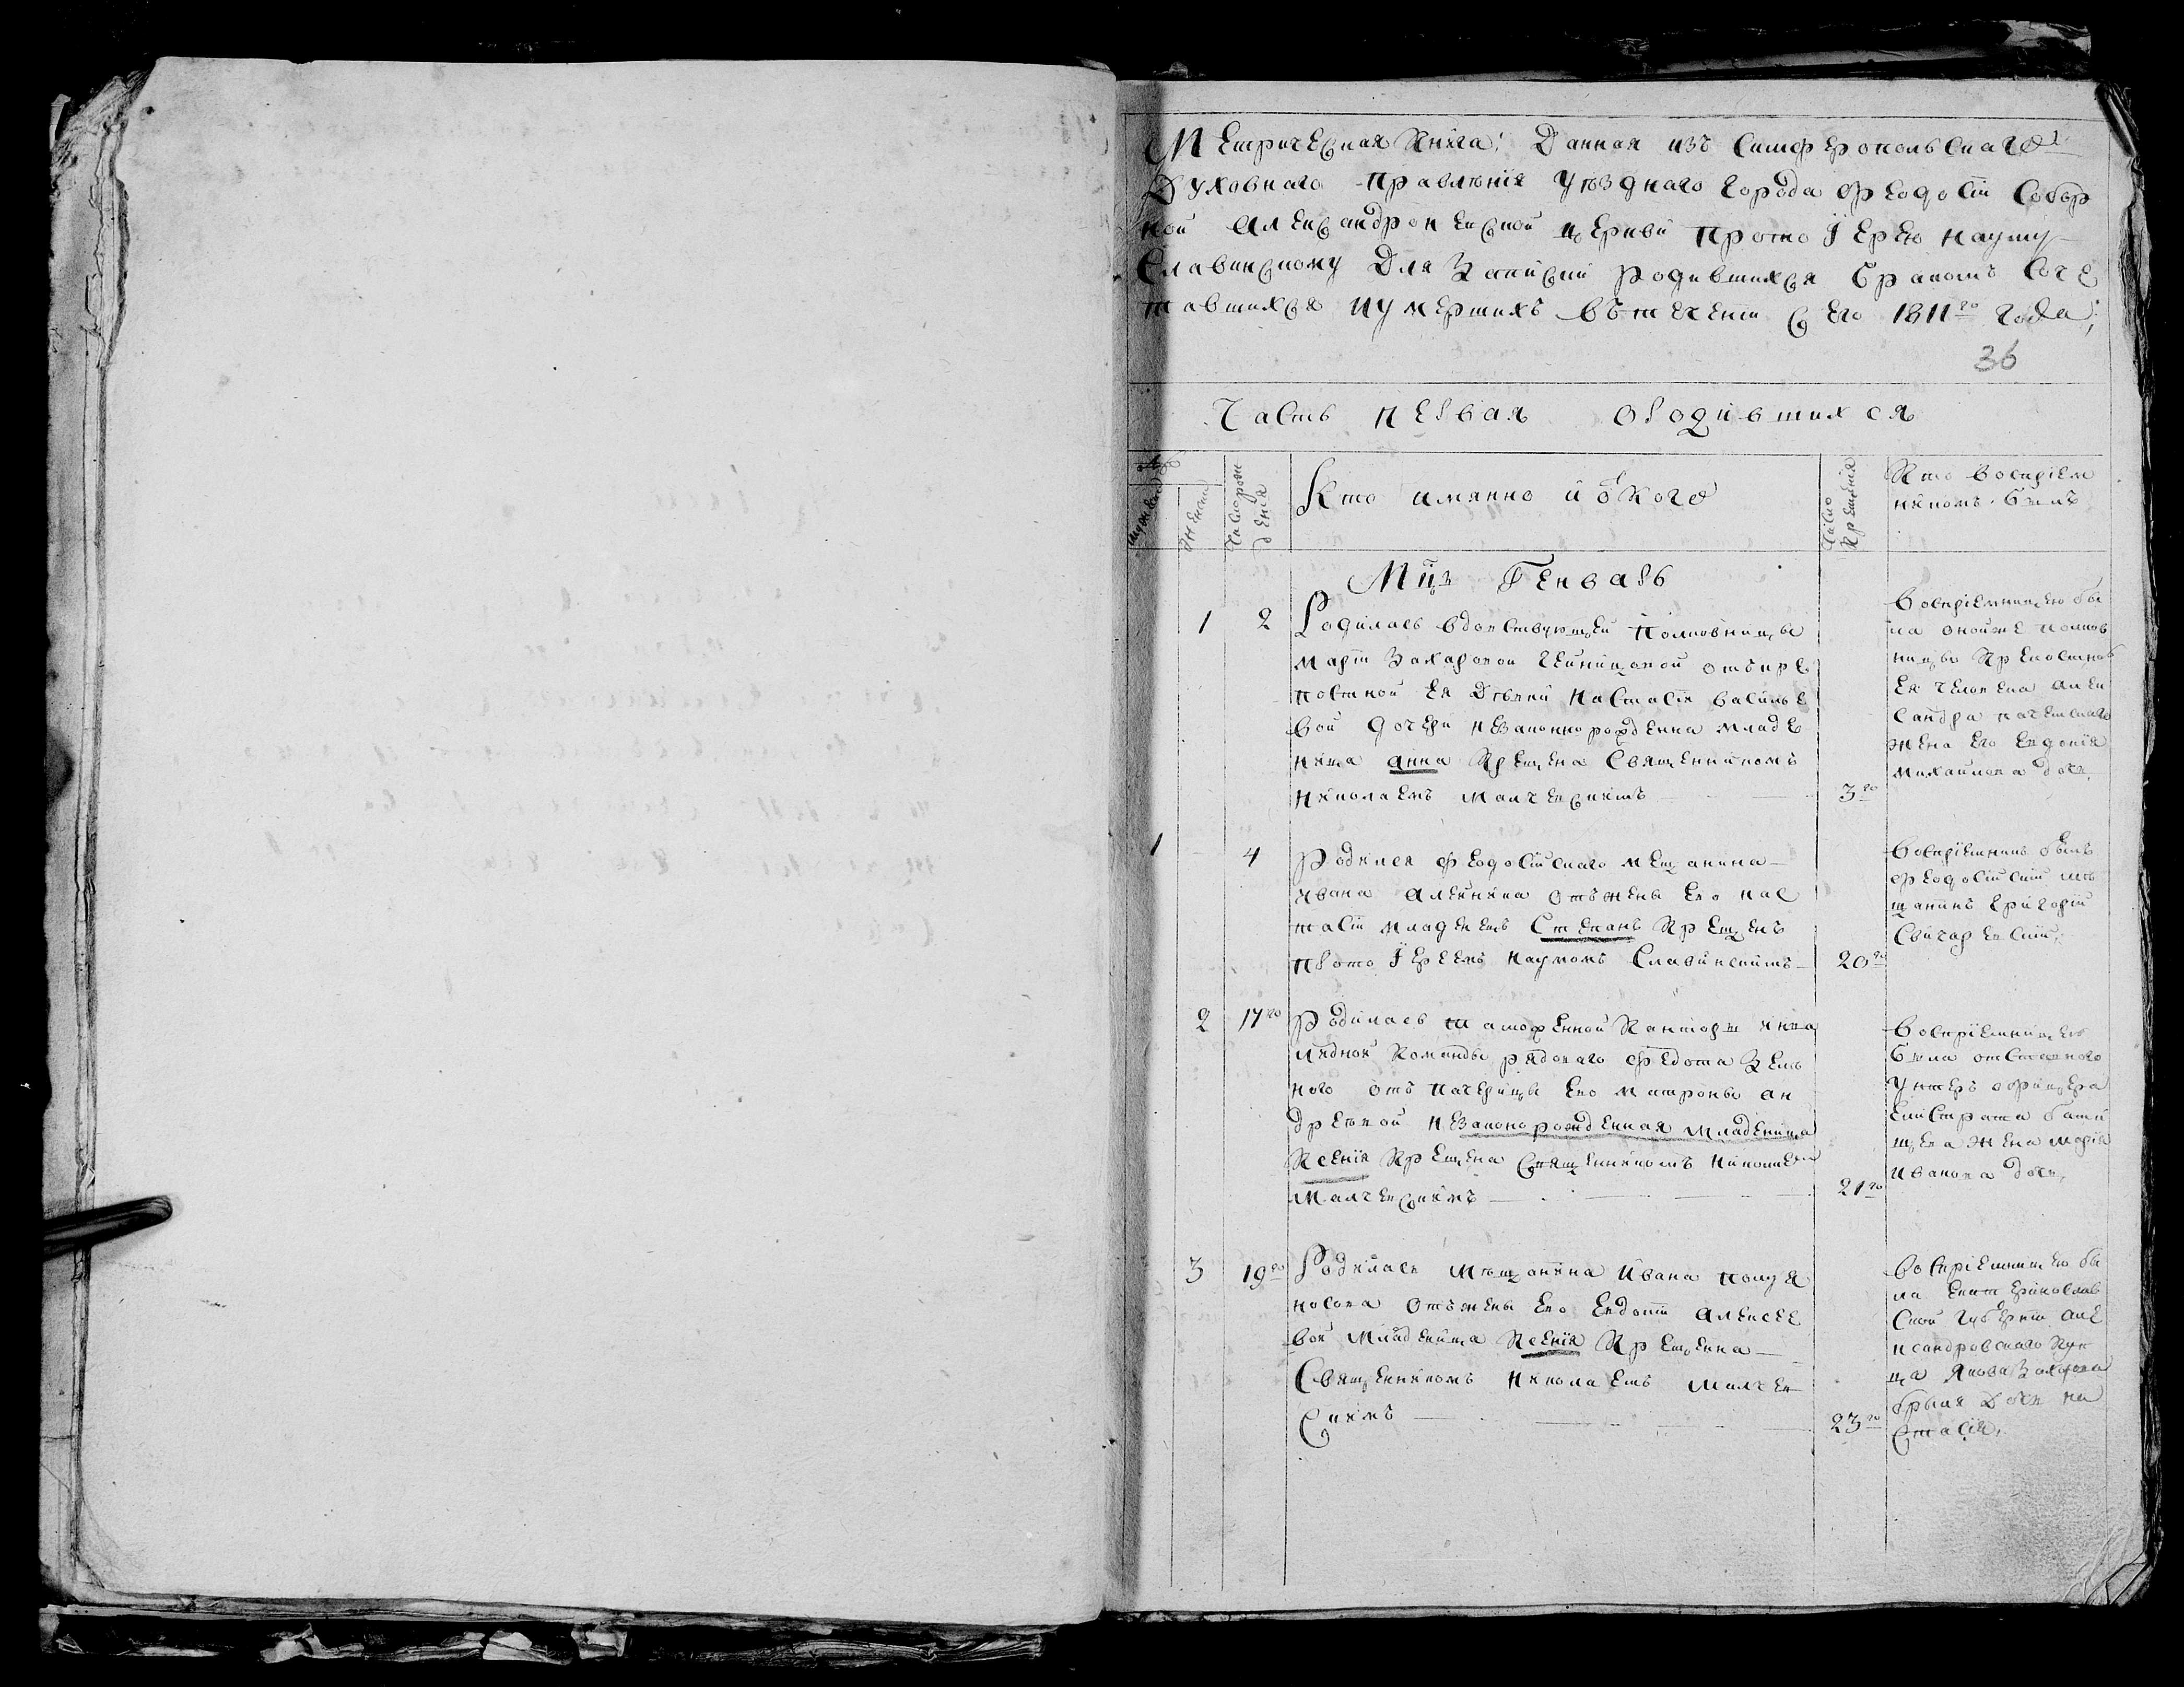 Метрическая Книга; Данная изъ Симферопольскаго
Духовнаго Правленія уѣзднаго города Феодосіи Собор
ной Александроневской церкви Протоіерею Науму
Славинскому Для Записки Родившихся Бракомъ Соче
тавшихся и умершихъ въ теченіи сего 1811го года;
36
Часть первая о родившихся
мужеска
женска
Число рож
денія
Кто имянно и ѿ кого
Число
Крещенія
Кто воспріем
никомъ былъ
Мцъ Генварь
1 2 Родилась вдовствующей Полковницы
Марїи Захаровой отъ кре
постной ея Девки Настасїи Василье
вой дочери незаконнорожденна младе
ница Анна Крещена Священникомъ
Николаемъ Малчевскимъ 3го
воспріемницею бы
ла оной же полков
ницы Крепостнаго
ея человека Алек
сандра
жена его Евдокія
Михайлова дочь,
1 4 Родился Феодосійскаго мещанина
Ивана Алейника отъ жены его Нас
тасіи младенецъ Степанъ Крещенъ
Протоіереемъ Наумомъ Славинскимъ 20го
воспріемникъ былъ
Феодосійскій мѣ
щанинъ Григорій
Свичаревскій;
2 17го Родилась таможенной Канторы
Команды рядоваго Федота
ного отъ падчерицы его Матроны Ан
дреевой незаконорожденная младеница
Ксенія Крещена Священникомъ Николаем
Малчевскимъ 21го
воспріемницею
была отставного
унтеръ офицера
Евстрата
жена Марія
Иванова дочь,
3 19го Родилась мѣщанина Ивана
носова отъ жены его Евдокїи Алексее
вой младеница Ксенія Крещенна
Священникомъ Николаемъ Малчев
скимъ 23го
воспріемницею бы
ла Екатеринослав
ской губерніи Але
ксандровскаго Куп
ца Якова Захарова
дочь На
стасія,